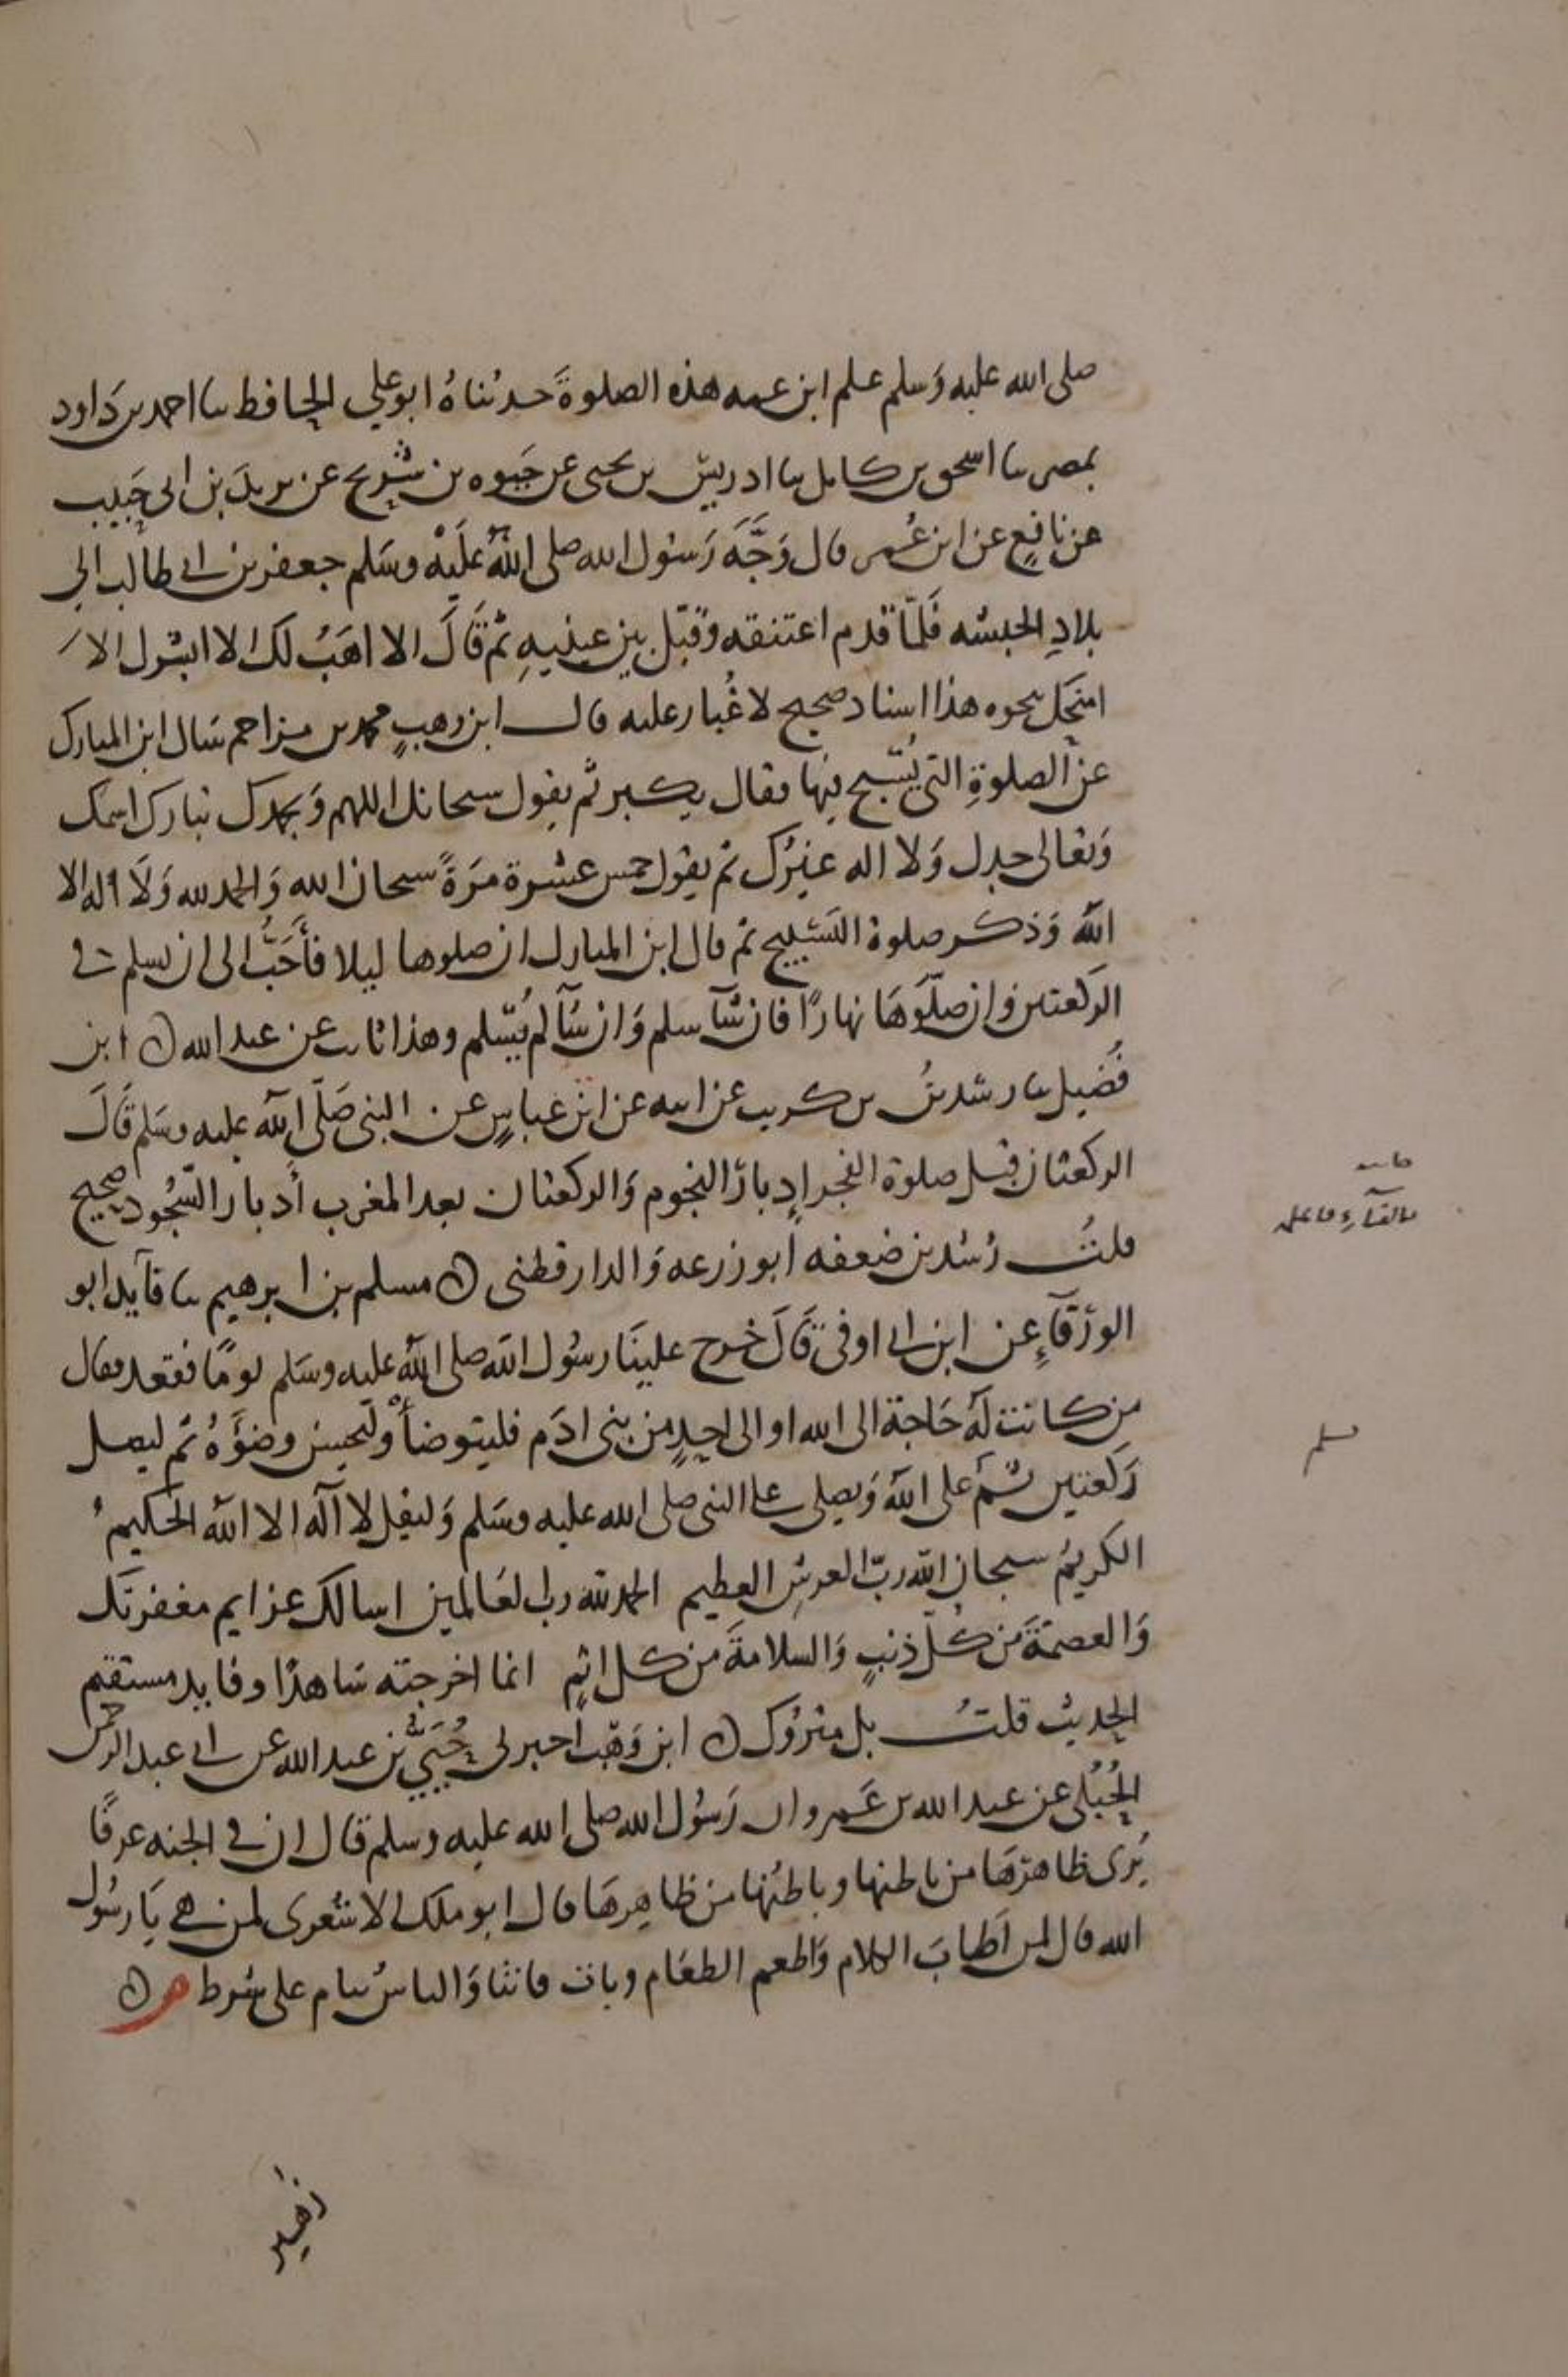 صلى الله عليه وَسلم علم ابن عمه هذه الصلوةَ حدثناهُ ابو علي الحافظ ىا احمد بن دَاود
بمصر ىا اسحق بن كامل ىا ادريس بن يحيى عن حَيوه بن شُريح عن يزيدَ بن ابى حَبيب
عن نافِعٍ عن ابن عُمر قال وَجَّهَ رَسُول الله صلى اللهُ عَليْه وسَلم جعفر بن ابى طالب الى
بلادِ الحبشه فَلمّا قدم اعتنقه وقبّل بين عينيهِ ثم قَالَ الا اهَبُ لك الا ابشرك الا
امنحك نحوه هذا اسناد صحيح لا غُبار عليه قال ابن وهبٍ محمد بن مزاحم سَال ابن المبارك
عن الصلوةِ التى يُسّبح فيها فقال يكبر ثم يقول سبحانك اللهم وَبحمدك تبارك اسمك
وَتعالى جدك وَلا اله غيرُك ثم يقول خمس عشرة مَرَةً سبحان الله وَالحمد لله وَلَا اله الا
اللهُ وَذكر صلوة التَسْبيح ثم قال ابن المبارك ان صلوها ليلا فأَحَبُّ الى ان يسلم فى
الركعتين وان صلّوهَا نهارًا فان شآ سلم وَان شآ لم يُسّلم وهذا ثابت عن عبد الله ابن
فُضيل ىا رشدينُ بن كريب عن ابيه عن ابن عباسٍ عن النبى صَلّى الله عليه وسَلم قَالَ
الركعتان قبل صلوة الفجر إِدبارَ النجوم وَالركعتان بعد المغرب أَدبار السّجُود صحيح
قلتُ رُشدين ضعفه ابو زرعه وَالدارقطنى مسلم بن ابرهيم ىا فآيد ابو
الورْقآءِ عن ابن ابى اوفى قَالَ خرج علينَا رسُول اللهَ صلى الله عليه وسَلم يومًا فقعد فقال
من كانت لَهُ حَاجة الى الله او الى احدٍ من بنى ادَم فليتوضأْ وليُحسِن وضوَءُهُ ثم ليصل
رَكعتين ثُمَ على الله وَيصلى على النبى صلى الله عليه وسَلم وَليقل لا آله الا الله الحكيمُ
الكريمُ سبحان الله ربّ العرشِ العظيم الحمد لله رب العَالمين اسالك عزايم مغفرتك
وَالعصمَةَ من كُلّ ذنبٍ وَالسلامةَ من كل اثمٍ انما اخرجته شاهدًا وفايد مستقيم
الحديث قلتُ بل متروُك ابن وَهْب اخبرنى حُيَيّ بن عبد الله عن ابى عبد الرحمن
الحُبُلى عن عبد الله بن عَمرو ان رَسُول الله صلى الله عليه وسلم قال ان فى الجنه غرفًا
يُرى ظاهرَهَا من باطنها وباطنُها من ظاهِرهَا قال ابو ملك الاشعرى لمن هى يَا رسُول
الله قال لمن اَطابَ الكلام وَاطعم الطعَام وبات قانتا وَالناسُ نيام على شرط م
بالفآءِ قاعل
مسلم